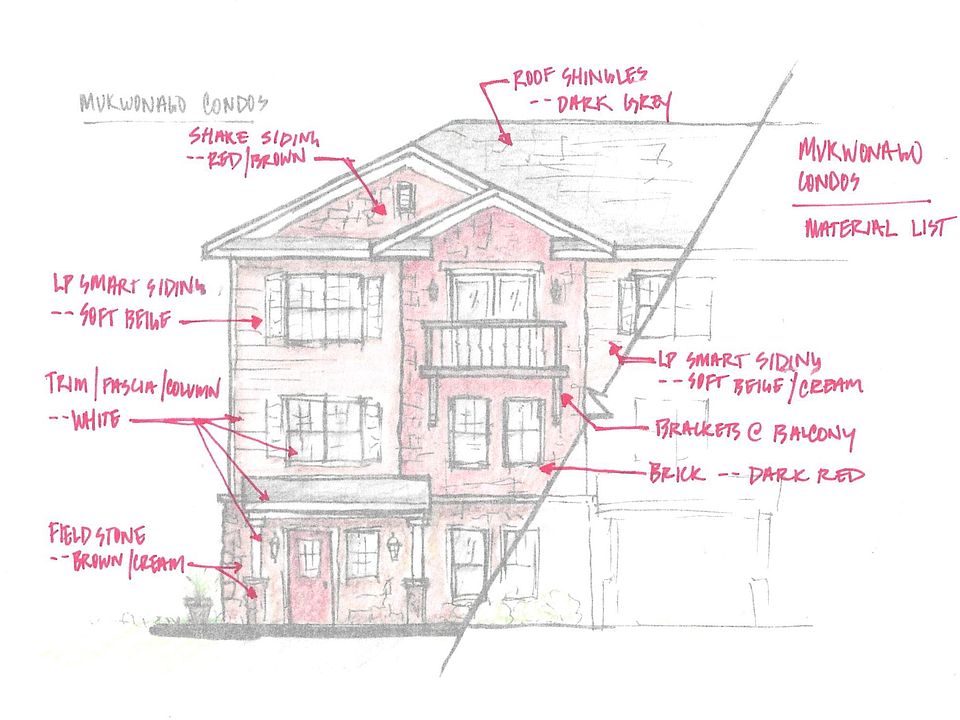 MUKWONAGO CONDOS
ROOF SHINGLES
-- DARK GREY
SHAKE SIDING
-- RED/BROWN
MUKWONAGO
CONDOS
MATERIAL LIST
LP SMART SIDING
-- SOFT BEIGE
LP SMART SIDING
-- SOFT BEIGE/CREAM
TRIM/FASCIA/COLUMN
-- WHITE
BRACKETS @ BALCONY
BRICK -- DARK RED
FIELD STONE
-- BROWN/CREAM